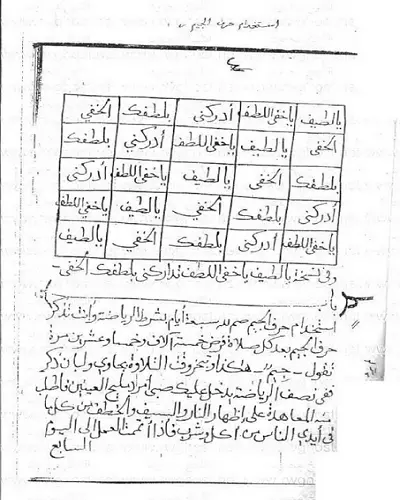 استخدام حرف الجيم
يالطيف ياخفي اللطف أدركني بلطفك الخفي
الخفي يالطيف ياخفي اللطف أدركني بلطفك
بلطفك الخفي يالطيف ياخفي اللطف أدركني
أدركني بلطفك الخفي يالطيف ياخفي اللطف
ياخفي اللطف أدركني بلطفك الخفي يالطيف
وفي نسخة يالطيف ياخفي اللطف تداركني بلطفك الخفي
باب
استخدام حرف الجيم صم لله سبعة أيام بشرط الرياضة وأنت تذكر
حرف الجيم بعد كل صلاة فرض خمسة آلاف وخمسا وعشرين مرة
تقول جيم هكذا وبخروقت التلاوة بجاوي ولبان ذكر
ففي نصف الرياضة يدخل عليك صبي أمرد مليح العينين فاطلب
منه المعاهدة على إظهار النار والسيف والخطف من كل ما
في أيدي الناس من أكل وشرب فاذا أتممت العمل الى اليوم
السابع